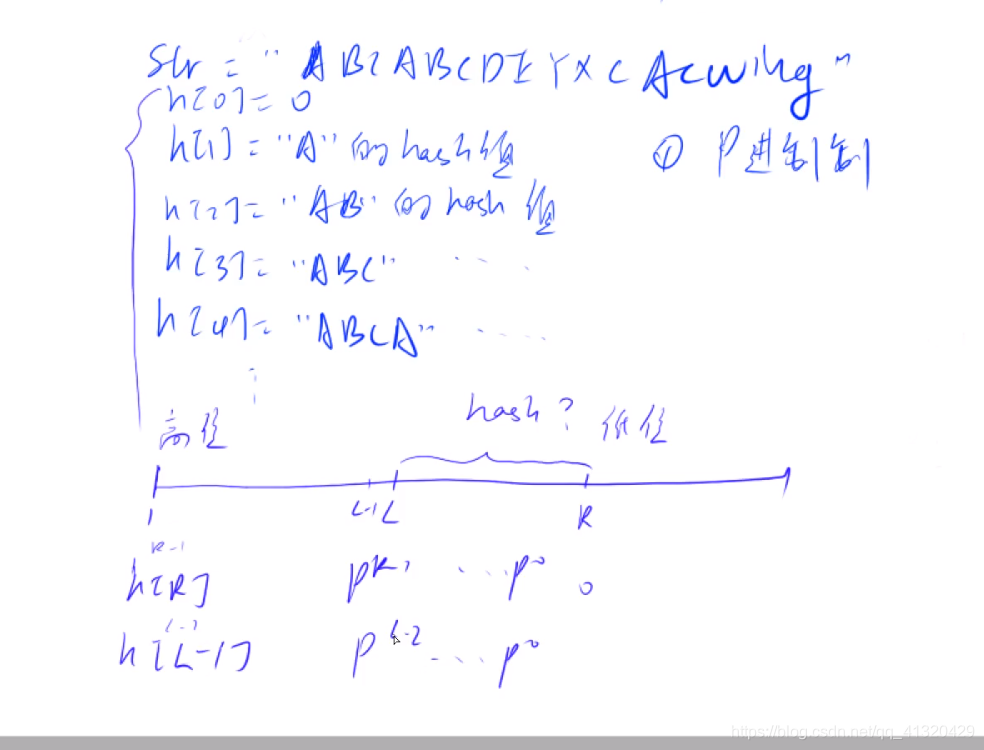 Str = "ABCABCDEYXCAcwing"
h[0] = 0
h[1] = "A" 的hash值
① P进制制
h[2] = "AB" 的hash值
h[3] = "ABC" ...
h[4] = "ABCA" ...
⋮
高位 hash? 低位
1 L-1 L R
R-1
h[R] P^R-1 ... P^0 0
h[L-1] P^L-2 ... P^0
https://blog.csdn.net/qq_41320429